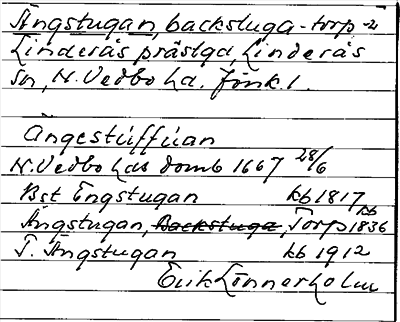 Ängstugan, backstuga - torp
Linderås prästgd, Linderås
sn, N. Vedbo hd. Jönk. l.
Ängestúffúan
N. Vedbo hds domb 1667 28/6
Bst Engstugan kb 1817
Ängstugan, Backstuga, Torp kb 1836
T. Ängstugan kb 1912
Erik Linnerholm